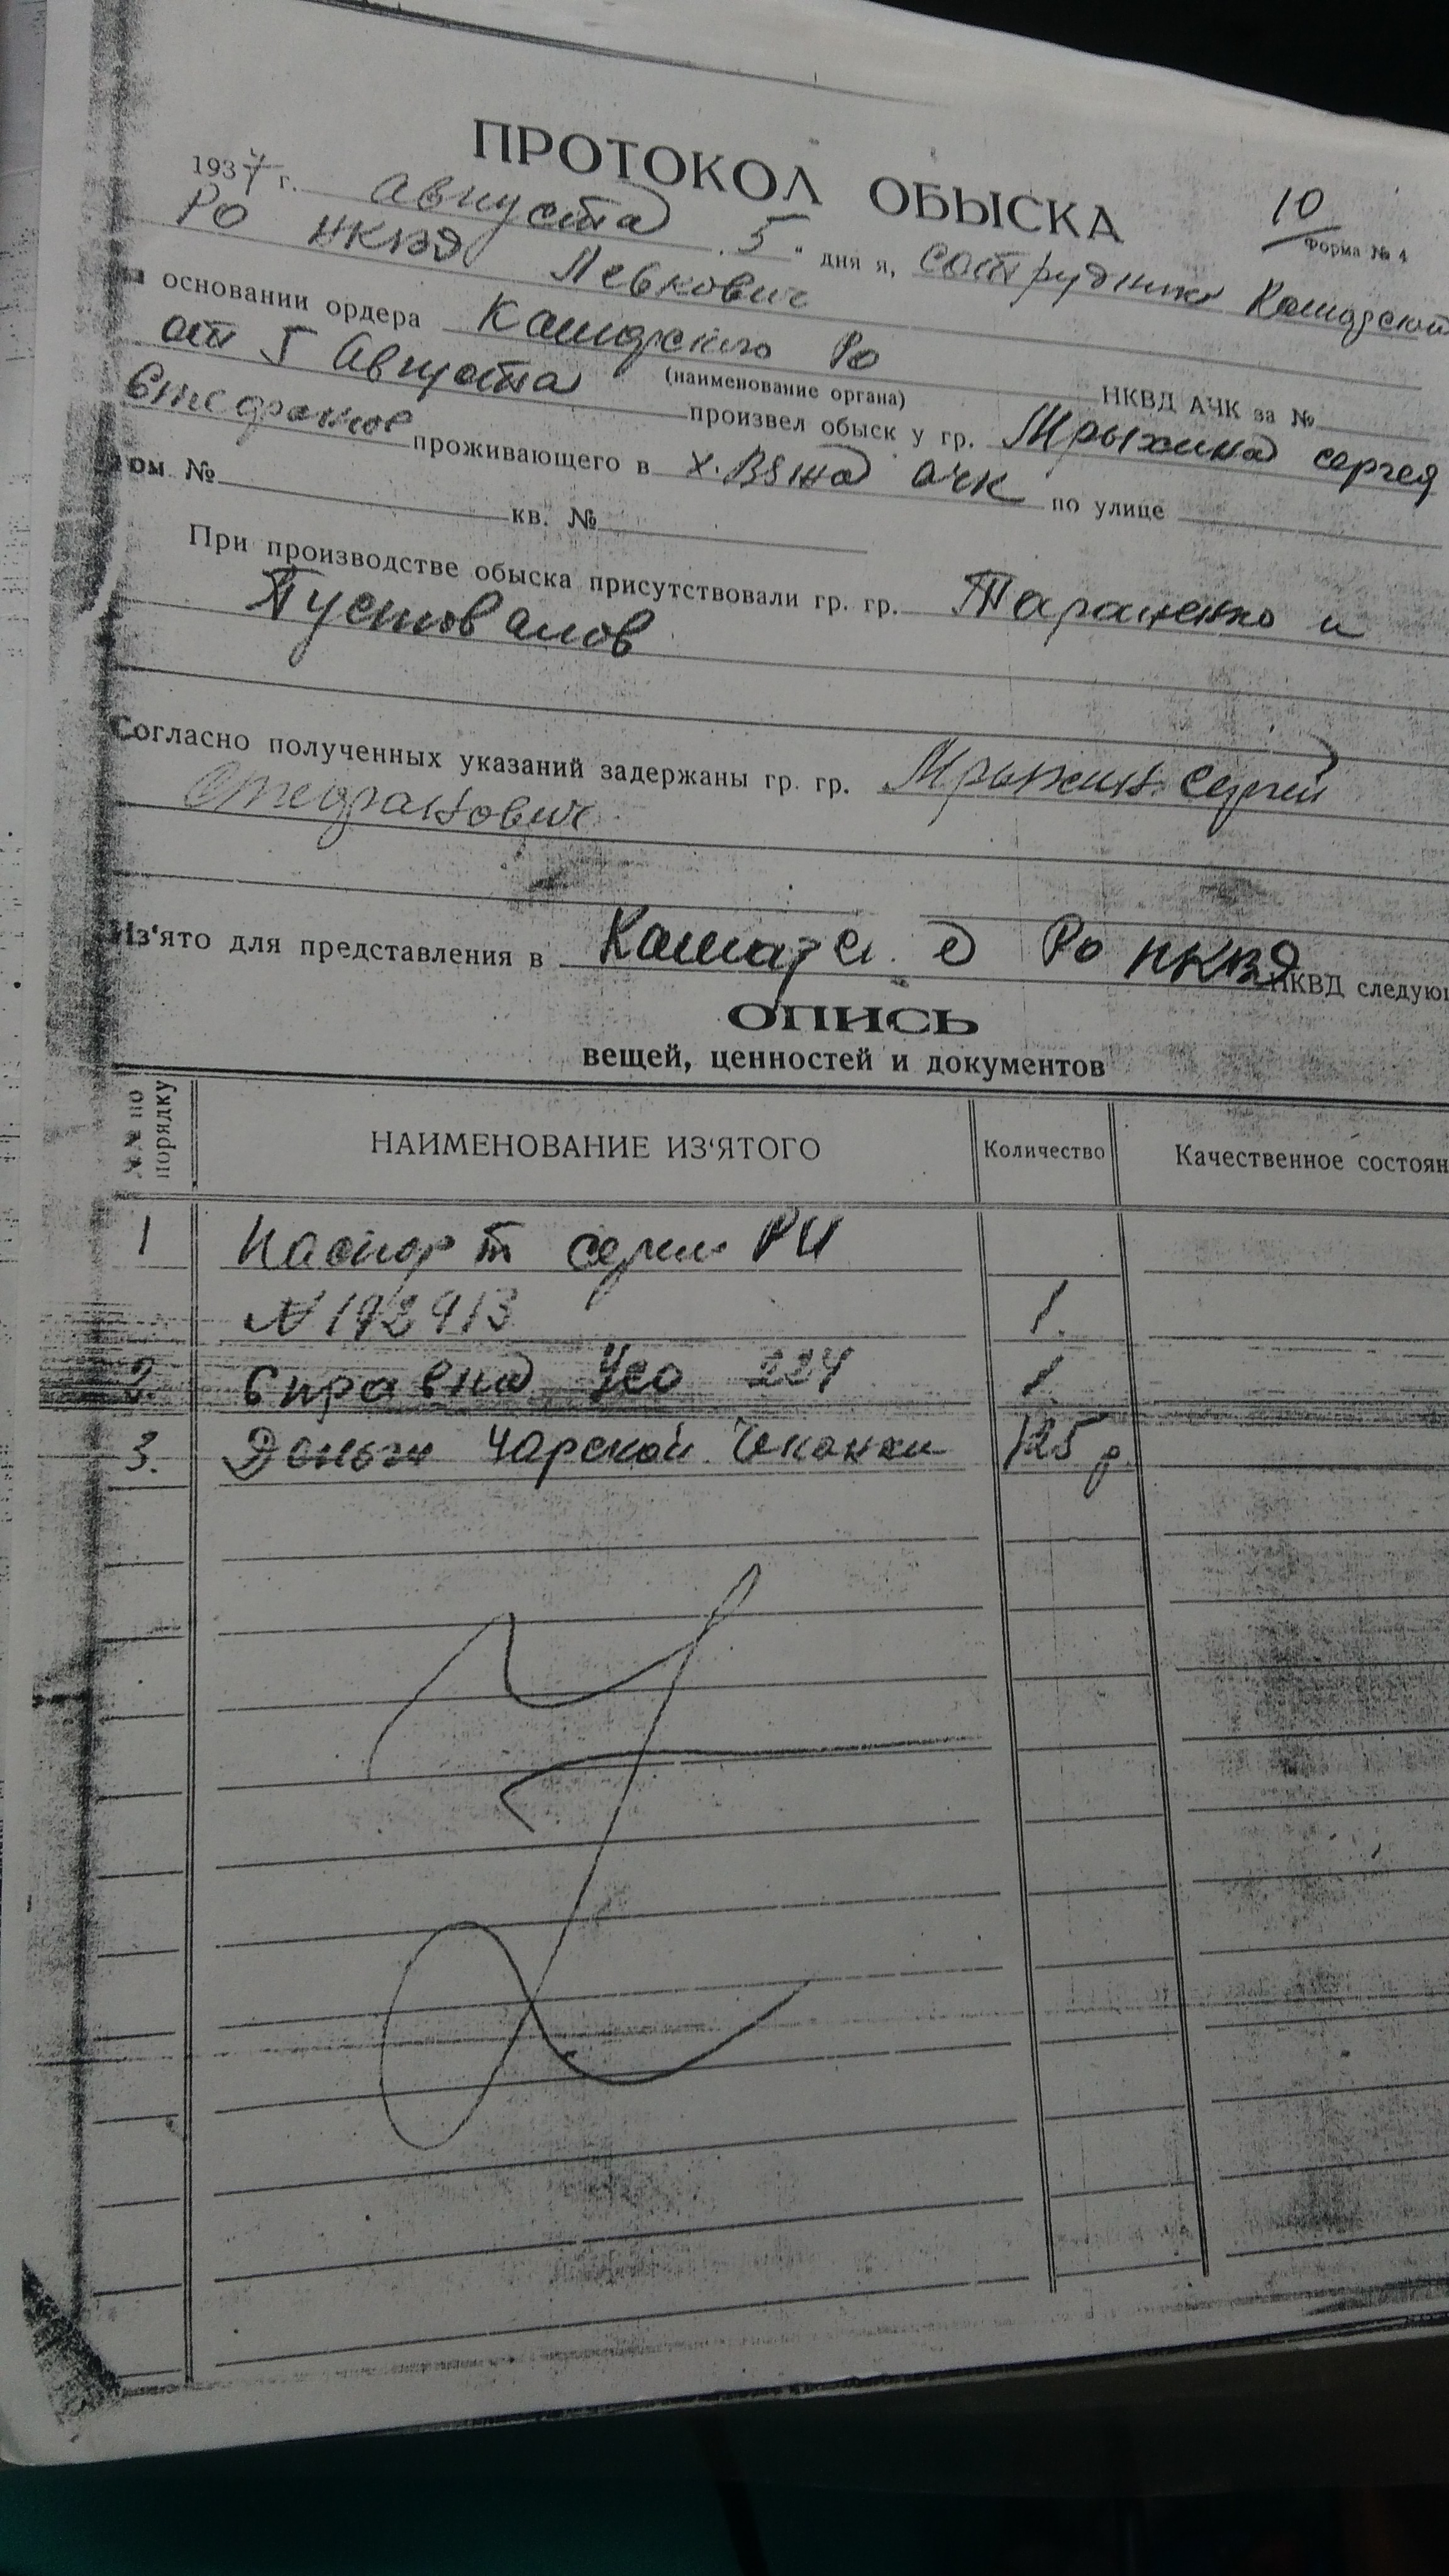 ПРОТОКОЛ ОБЫСКА
10
Форма № 4
1937 г. августа 5 " дня я, сотрудник Кашарский
РО НКВД Левкович
основании ордера Кашарского РО НКВД АЧК за №
(наименование органа)
от 5 Августа произвел обыск у гр. Мрыхина Сергея
Стефанов проживающего в х. Вяжа АЧК по улице
ом № кв. №
При производстве обыска присутствовали гр. гр. Тараненко и
Пустовалов
Согласно полученных указаний задержаны гр. гр. Мрыхин Сергей
Стефанович
Из'ято для представления в РО НКВД НКВД следую
ОПИСЬ
вещей, ценностей и документов
№№ по порядку
НАИМЕНОВАНИЕ ИЗ'ЯТОГО Количество Качественное состоян
1 Паспорт серии РИ
N 172913 1.
2. Справка 224 1
3. Деньги Царской Чеканки 125 р.